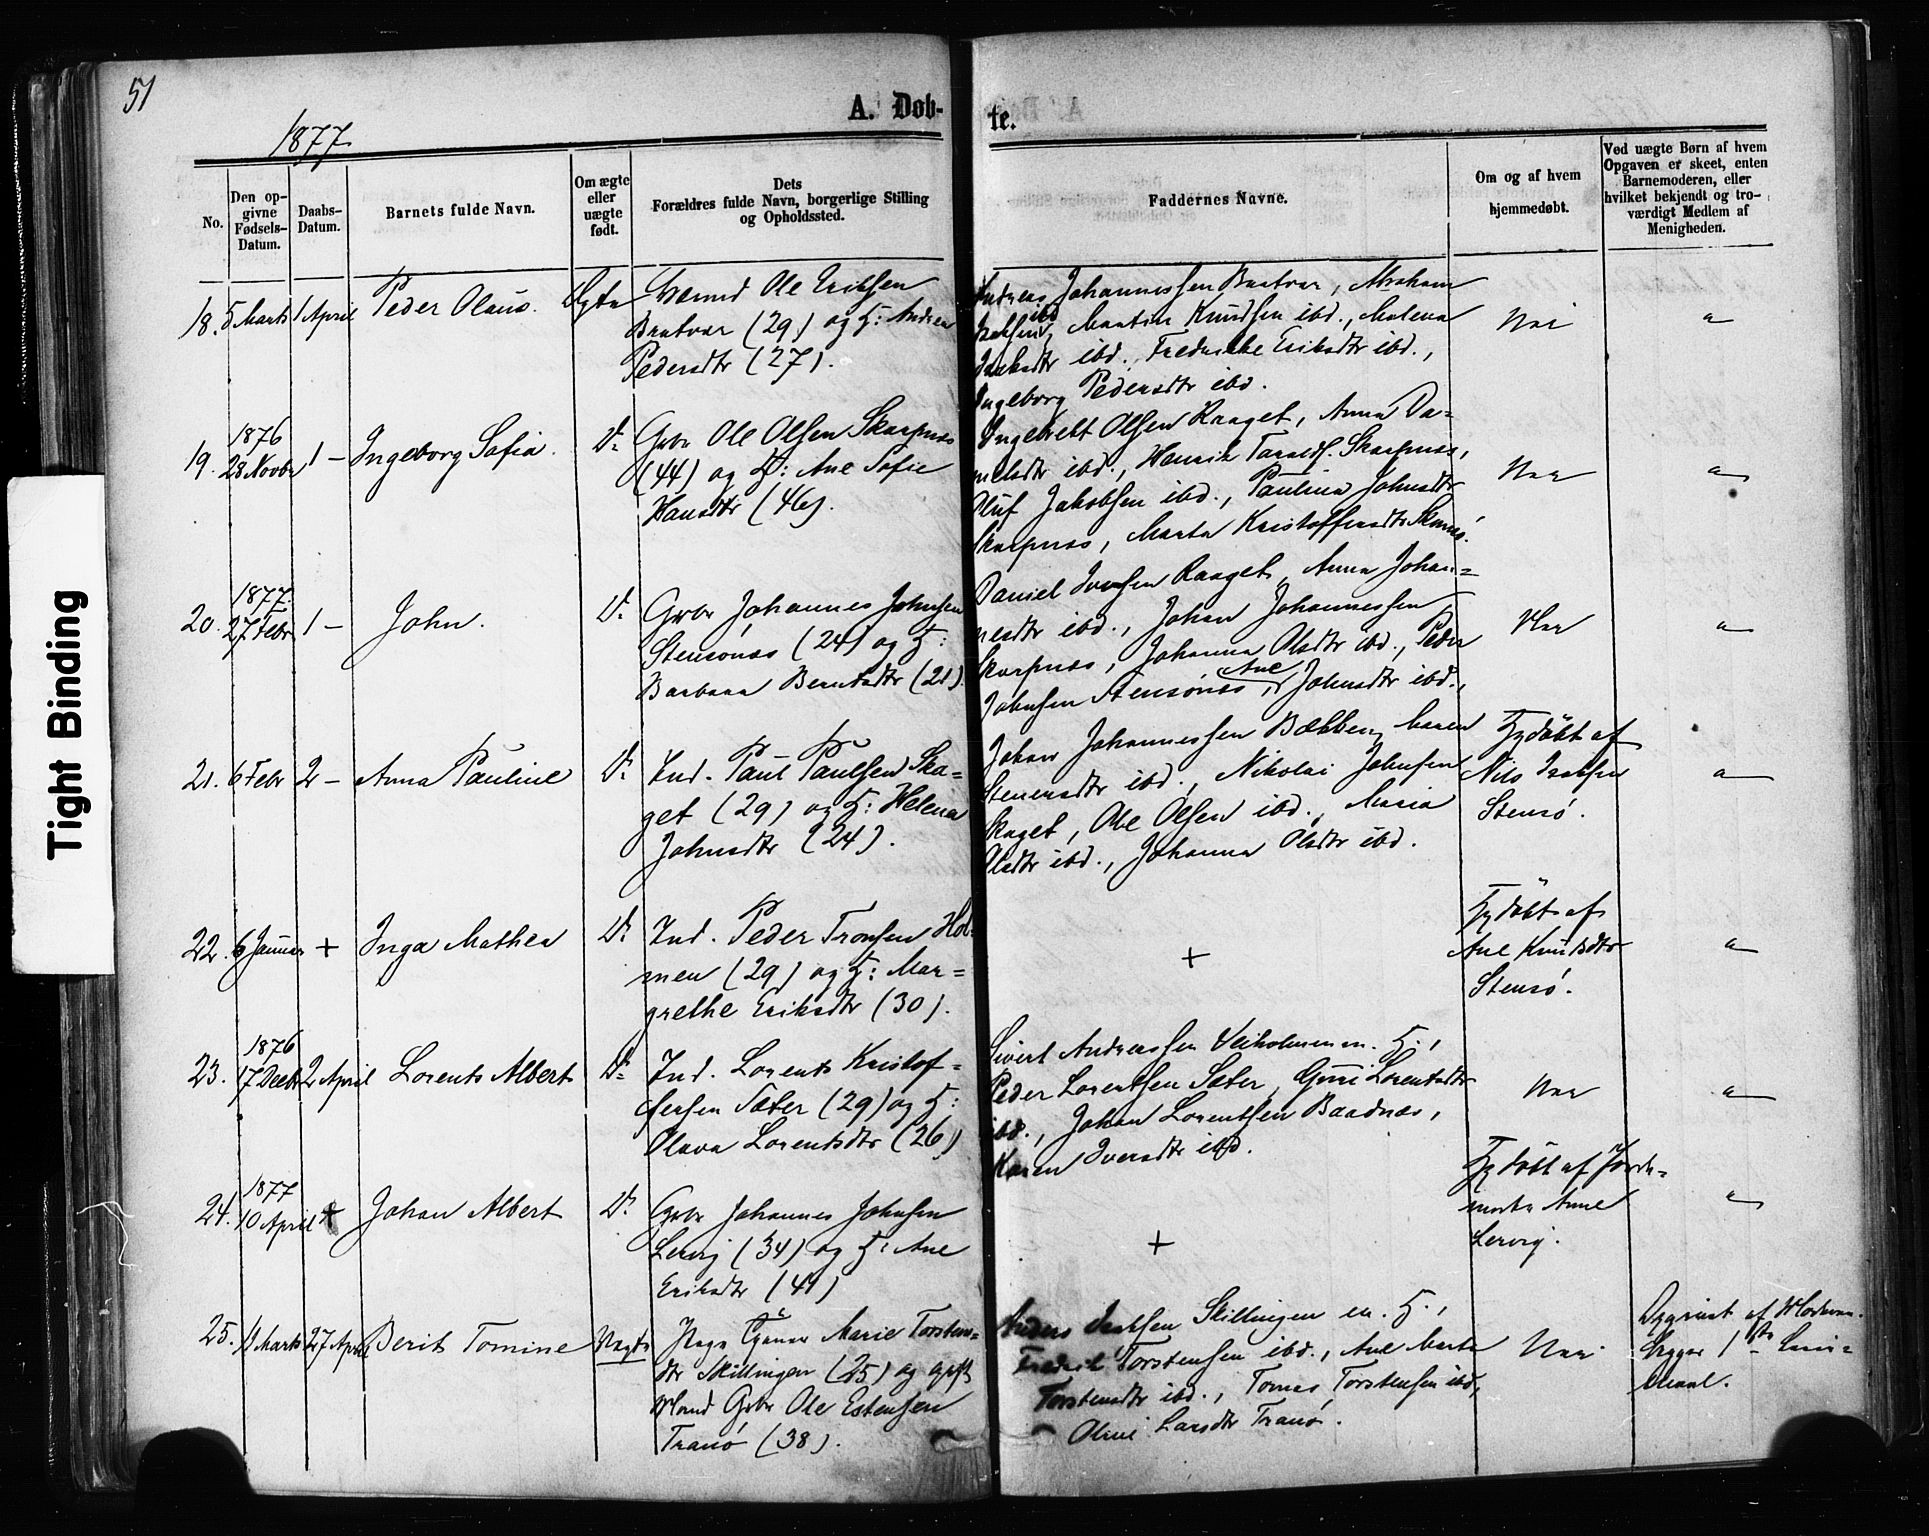 51
1877
A. Døb-
te.
No.
Den op-
givne
Fødsels-
Datum.
Daabs-
Datum.
Barnets fulde Navn.
Om ægte
eller
uægte
født.
Dets
Forældres fulde Navn, borgerlige Stilling
og Opholdssted.
Faddernes Navne.
Om og af hvem
hjemmedøbt.
Ved uægte Børn af hvem
Opgaven er skeet, enten
Barnemoderen, eller
hvilket bekjendt og tro-
værdigt Medlem af
Menigheden.
18. 5 Marts 1 April Peder Olaus. Ægte
Ole Eriksen
Bratvær (29) og H: Andrea
Pedersdtr (27).
Andreas Johannessen Bratvær, Abraham
Isaksen ibd, Martin Knudsen ibd., Malena
Isaksdtr ibd., Fredrikke Eriksdtr ibd.,
Ingeborg Pedersdtr ibd.
Nei
"
19. 1876
28 Novbr 1 - Ingeborg Sofia. Do
Gbr Ole Olsen Skarpnæs
(44) og H: Ane Sofie
Hansdtr (46).
Ingebrett Olsen Kaaget, Anna Da=
nielsdtr ibd., Henrik Skarpnæs,
Oluf Jakobsen ibd., Paulina Johnsdtr
Skarpnæs, Marta Kristoffersdtr
Nei
"
20. 1877
27 Febr 1 - John. Do
Gbr Johannes Johnsen
Stensønæs (24) og H:
Barbara Berntsdtr (21).
Daniel Iversen Kaaget, Anna Johan=
nesdtr ibd., Johan Johannessen
Skarpnæs, Johanna Olsdtr ibd., Peder
Johnsen Stensønæs, Ane Johnsdtr ibd.,
Nei
"
21. 6 Febr 2 - Anna Pauline Do
Ind. Paul Paulsen Ska=
get (29) og H: Helena
Johnsdtr (24).
Johan Johannessen Bækken, Maren
Stenersdtr ibd., Nikolai Johnsen
Skaget, Ole Olsen ibd., Maria
Olsdtr ibd., Johanna Olsdtr ibd.
Hjdöbt af
Nils Isaksen
Stensø.
"
22. 6 Januar + Inga Mathea Do
Ind. Peder Tronsen Hol=
men (29) og H: Mar=
grethe Eriksdtr (30).
+
Hjdöbt af
Ane Knudsdtr
Stensø.
"
23. 1876
17 Decbr 2 April Lorents Albert Do
Ind. Lorents Kristof=
fersen Sæter (29) og H:
Olava Lorentsdtr (26)
Sivert Andreassen Veiholmen m. H.,
Peder Lorentsen Sæter, Guri Lorentsdtr
ibd., Johan Lorentsen Baadnæs,
Karen Iversdtr ibd.
Nei
"
24. 1877
10 April + Johan Albert Do
Gbr Johannes Johnsen
Lervig (34) og H: Ane
Eriksdtr (41)
+
Hjdöbt af Jorde=
moder Anne
Lervig.
"
25. 11 Marts 27 April Berit Tomine Uægte
Pige Marie Torstens=
dtr Skillingen (25) og gift
Mand Gbr Ole Estensen
Tranø (38).
Anders Isaksen Skillingen m. H.,
Fredrik Torstensen ibd., Ane Marta
Torstensdtr ibd., Tomas Torstensen ibd,
Oline Larsdtr Tranø.
Nei
Opgivet af Moderen.
Begges 1ste Leier=
maal.
Tight Binding